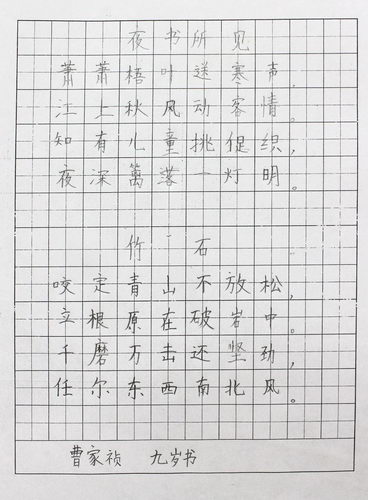 夜书所见
萧萧梧叶送寒声,
江上秋风动客情。
知有儿童挑促织,
夜深篱落一灯明。
竹石
咬定青山不放松,
立根原在破岩中。
千磨万击还坚劲,
任尔东西南北风。
曹家祯 九岁书